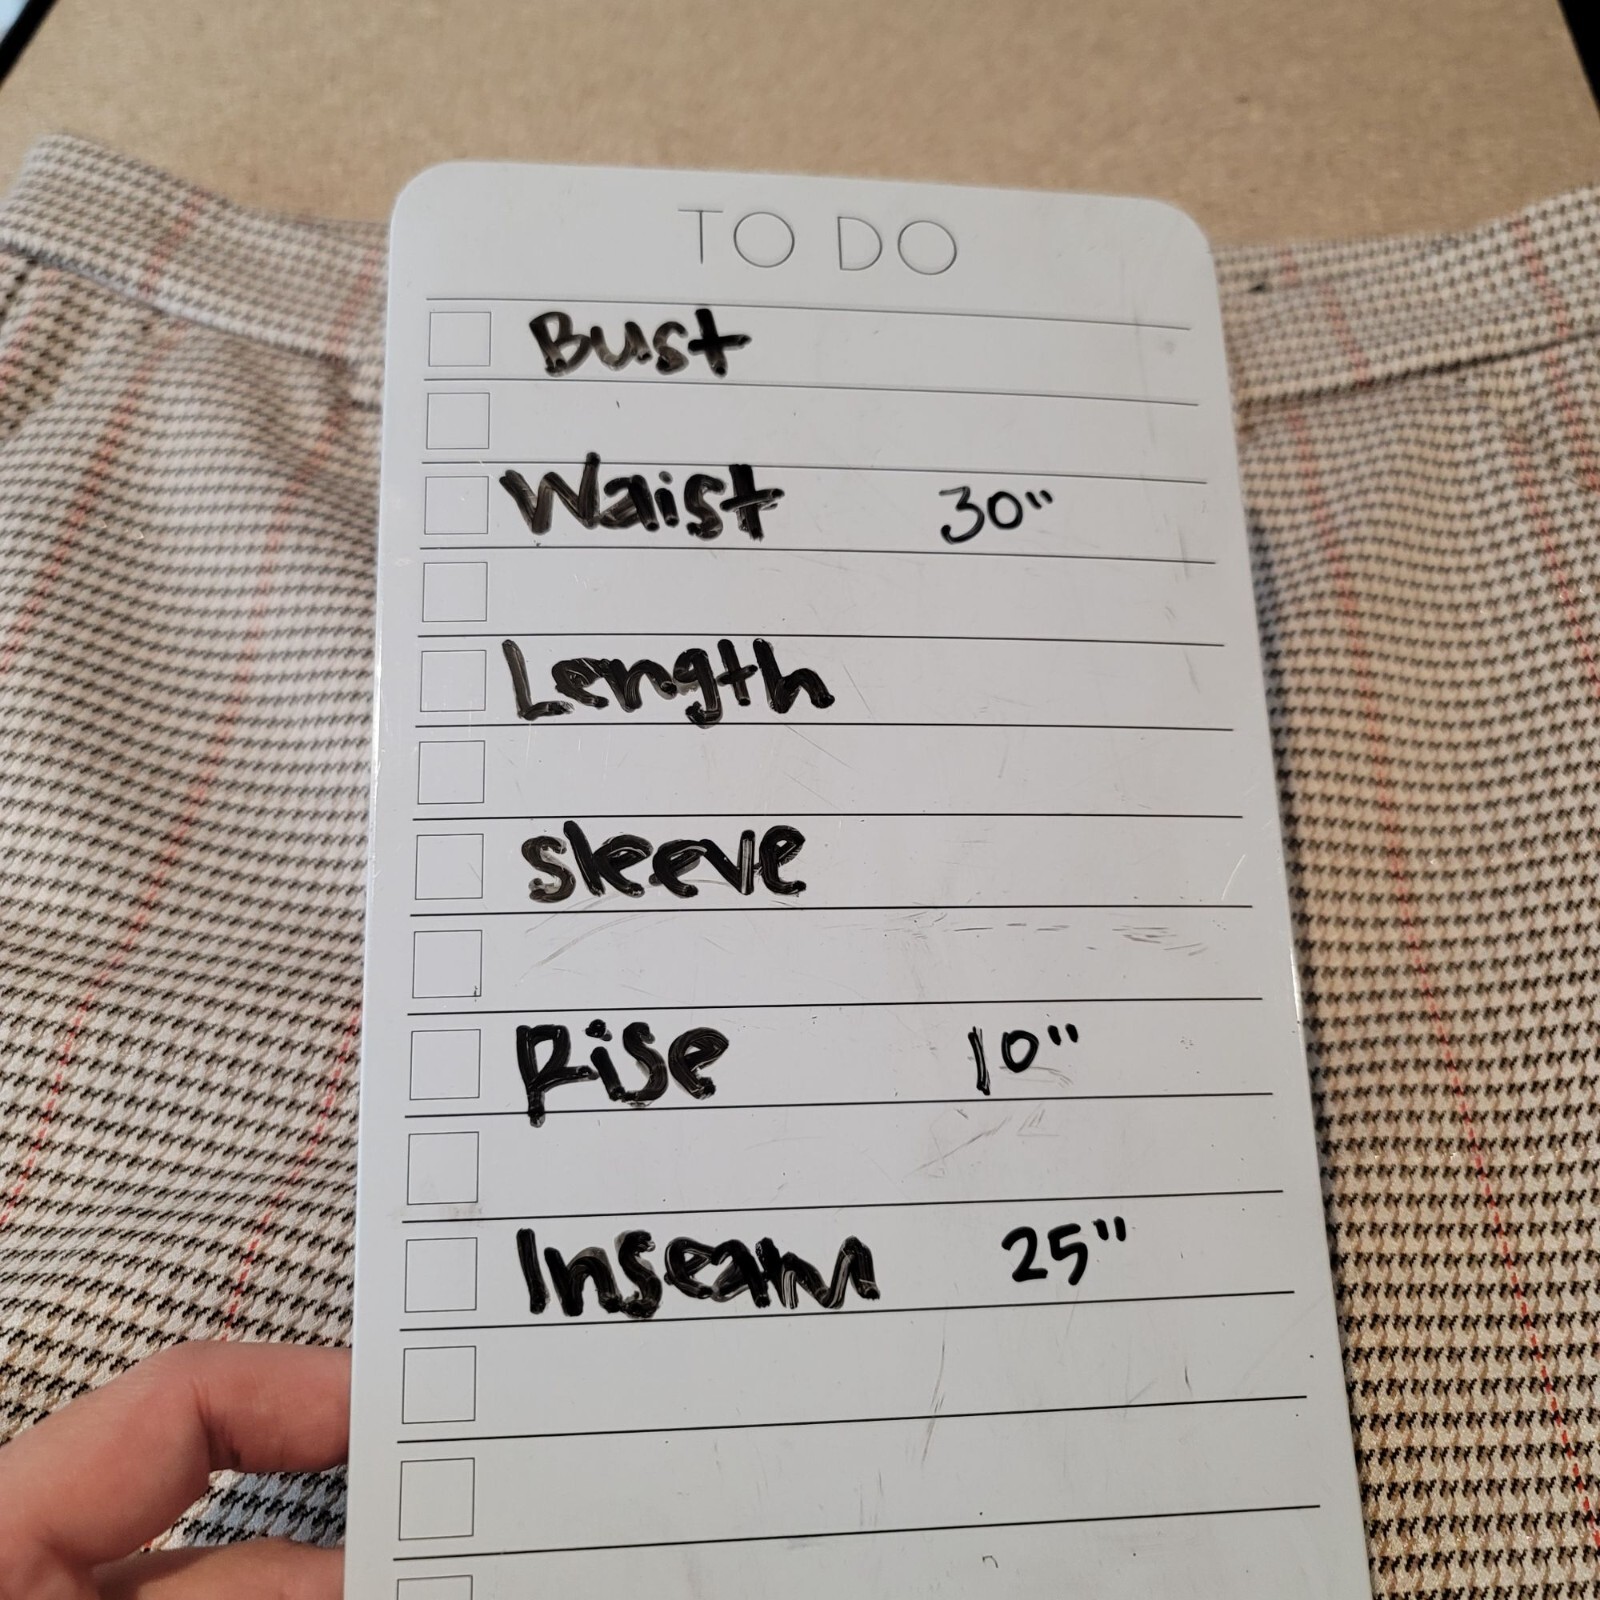 TO DO
Bust
Waist 30"
Length
sleeve
Rise 10"
Inseam 25"